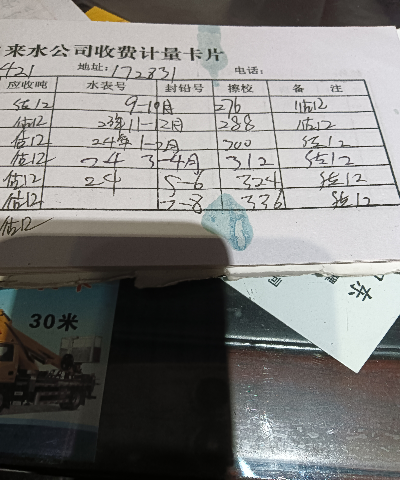 来水公司收费计量卡片
421 地址:172831 电话:
应收吨 水表号 封铅号 擦校 备 注
估12 9-10月 276 估12
估12 23年11-12月 288 估12
估12 24年1-2月 300 估12
估12 24 3-4月 312 估12
估12 24 5-6 324 估12
估12 7-8 336 估12
估12
30米